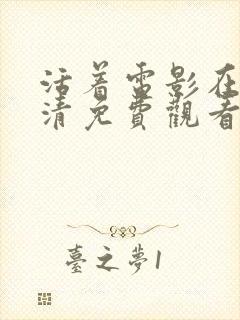 活着雷影在
清免費觀看
臺之夢1